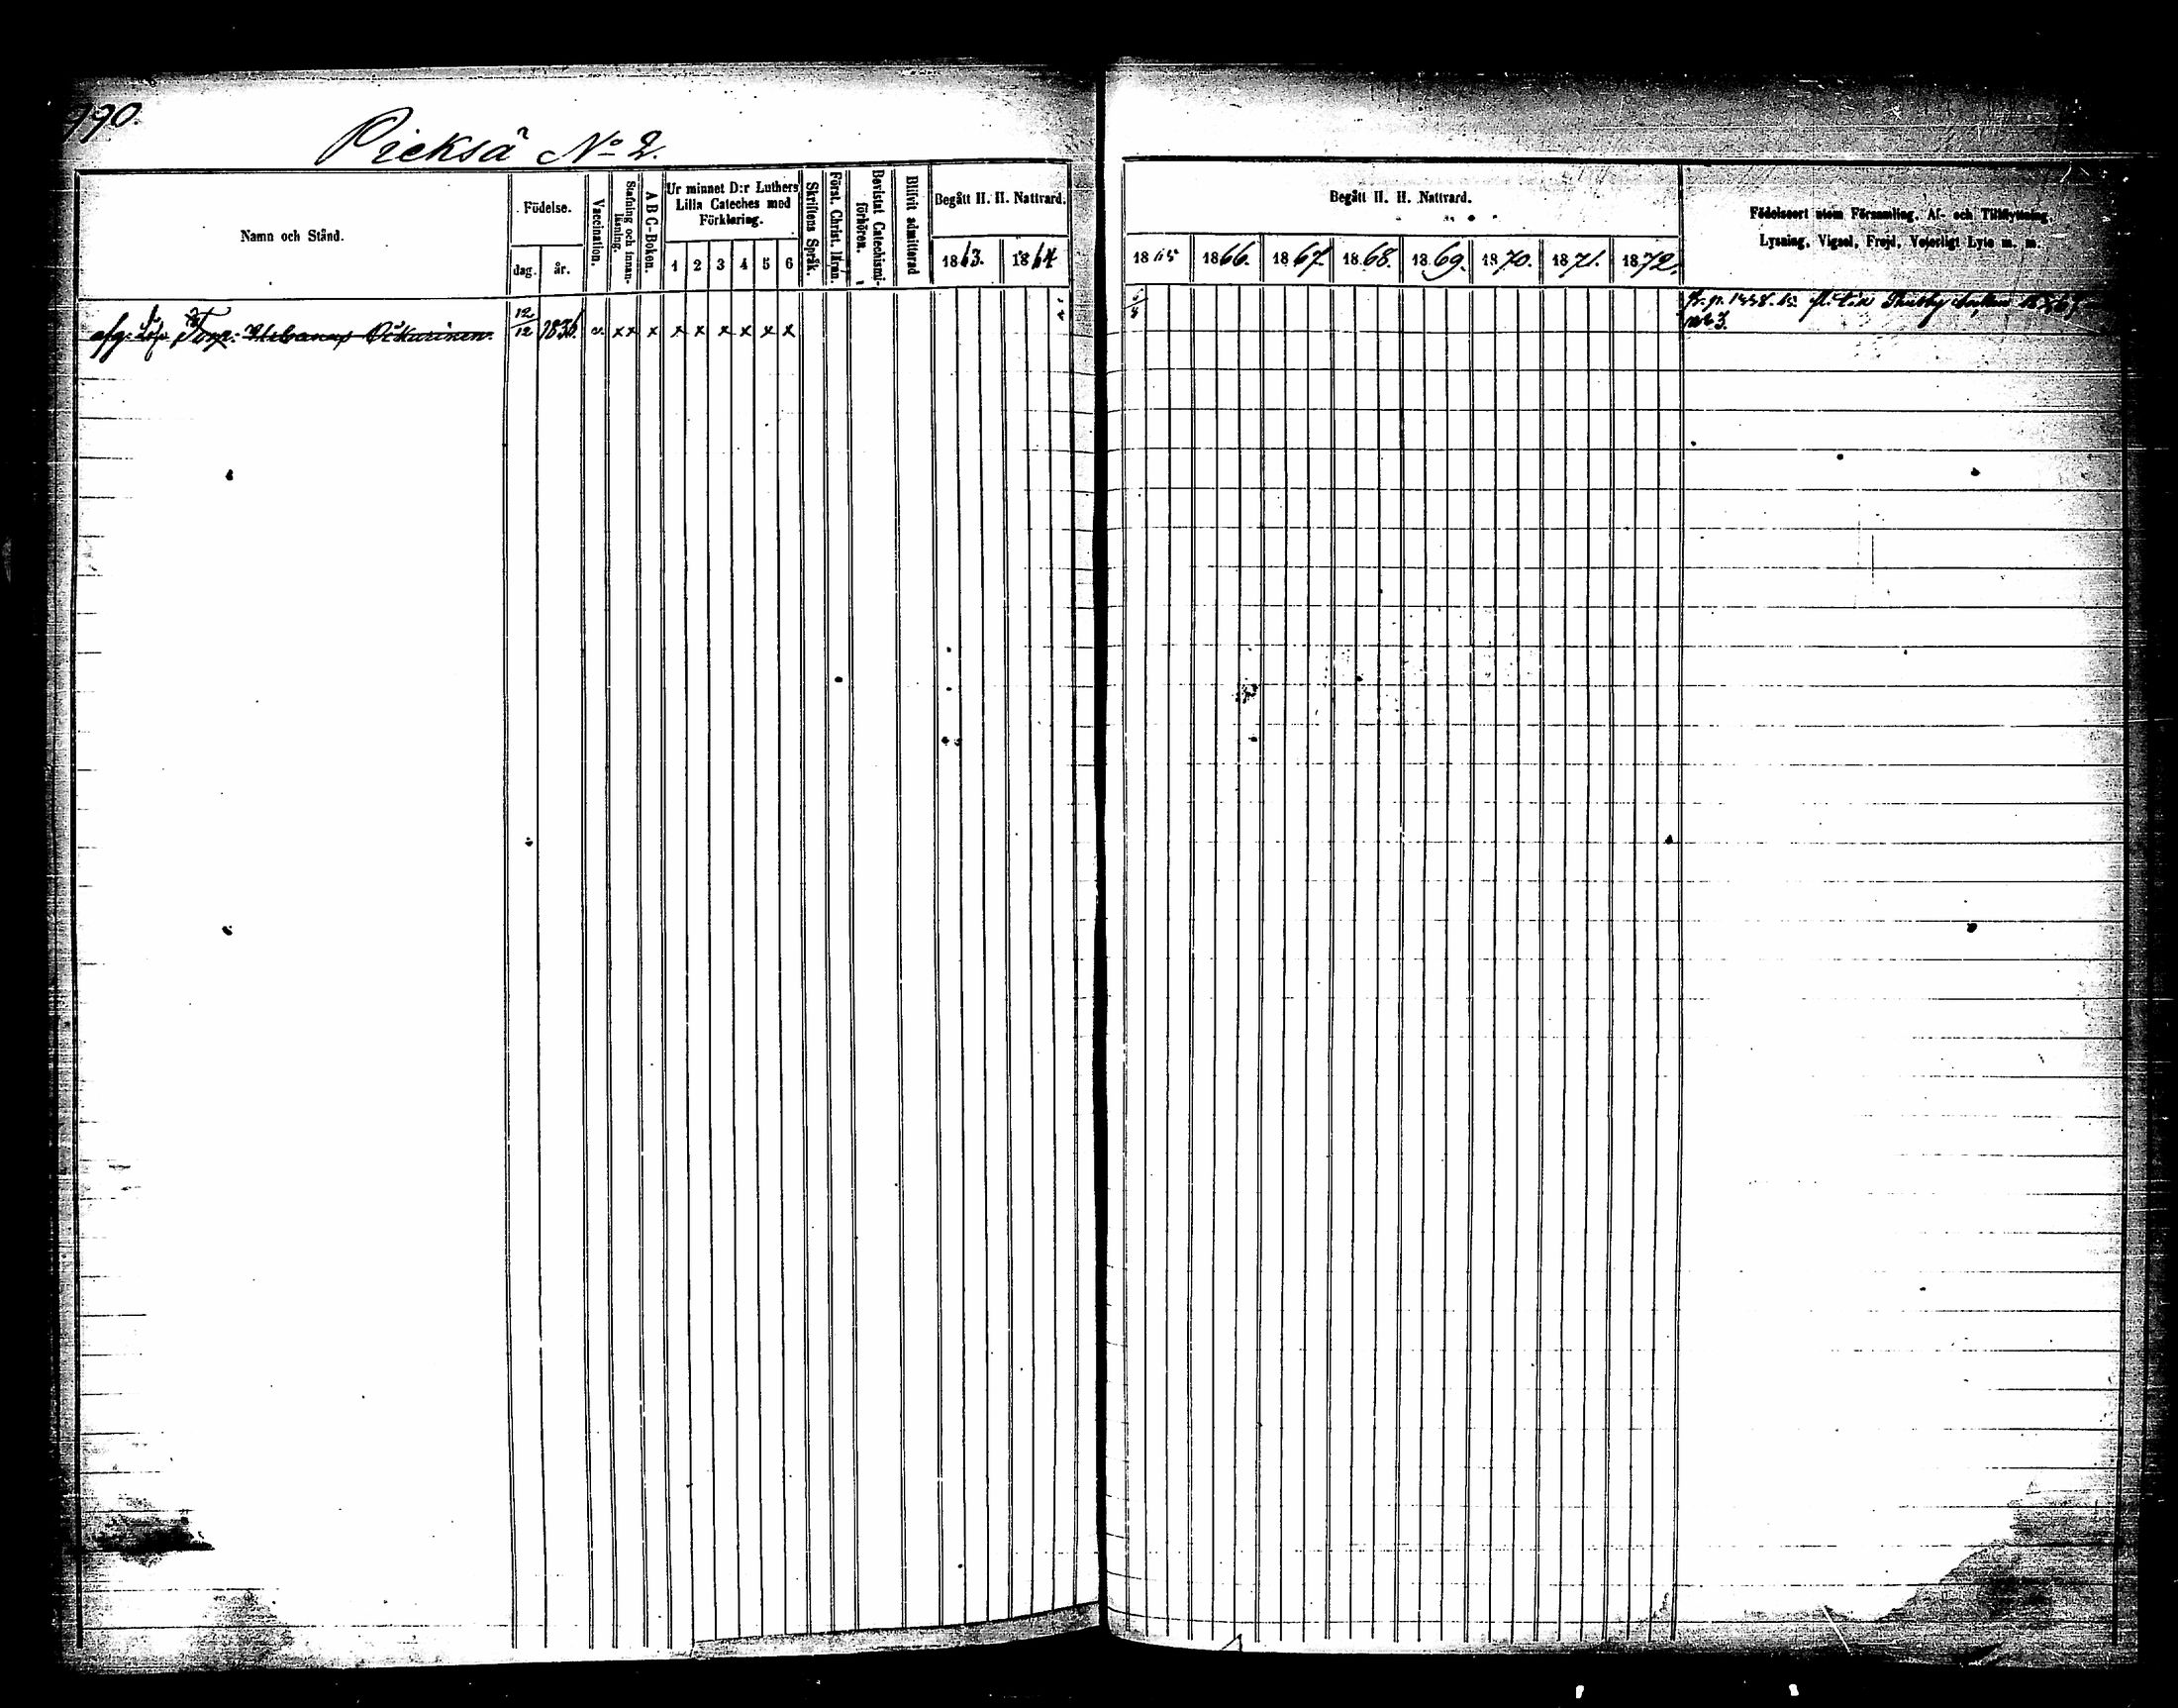 990.
Pieksä No 2.
Namn och Stånd.
Födelse.
dag.
år.
Vaccination.
Stafning och innan-
läsning.
A B C-Boken.
Ur minnet D:r Luthers
Lilla Cateches med
Förklaring.
1 2 3 4 5 6
Skriftens Språk.
Först. Christ. lRan.
Bevistat Catechismi-
förhören.
Blifvit admitterad
Begått H. H. Nattvard.
1863. 1864
Begått H. H. Nattvard.
1865 1866. 1867. 1868. 1869. 1870. 1871. 1872.
Födelseort utom Församling. Af- och Tillflyttning
Lysning, Vigsel, Frejd, Vetterligt Lyte m. m.
12/12 1836. v xx x x x x x x x